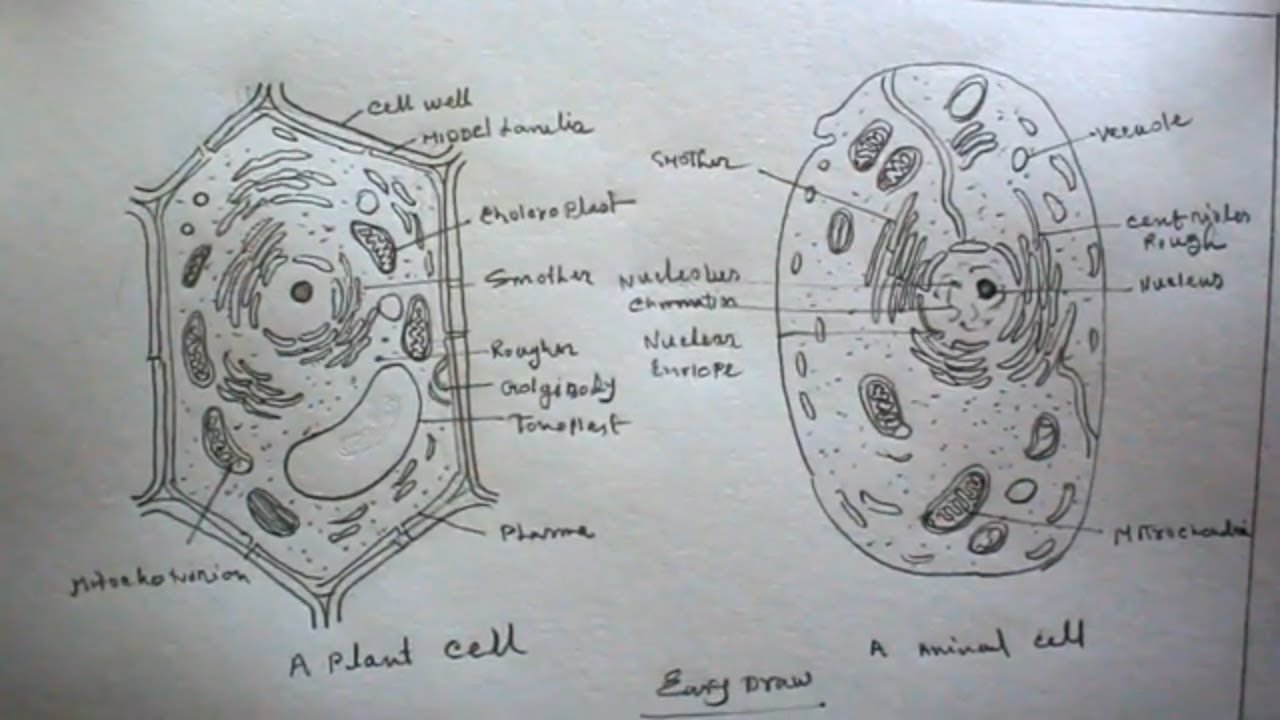 cell well
MIDDel Lamelia
Choloroplast
Smother
Rougher
Golgi Body
Tonoplast
Plasma
A Plant cell
Smother
Nucleolus
Chromatin
Nuclear
Vecuole
Centrioles
Rough
Nucleus
Mitrochondria
A Aninal cell
Easy Draw